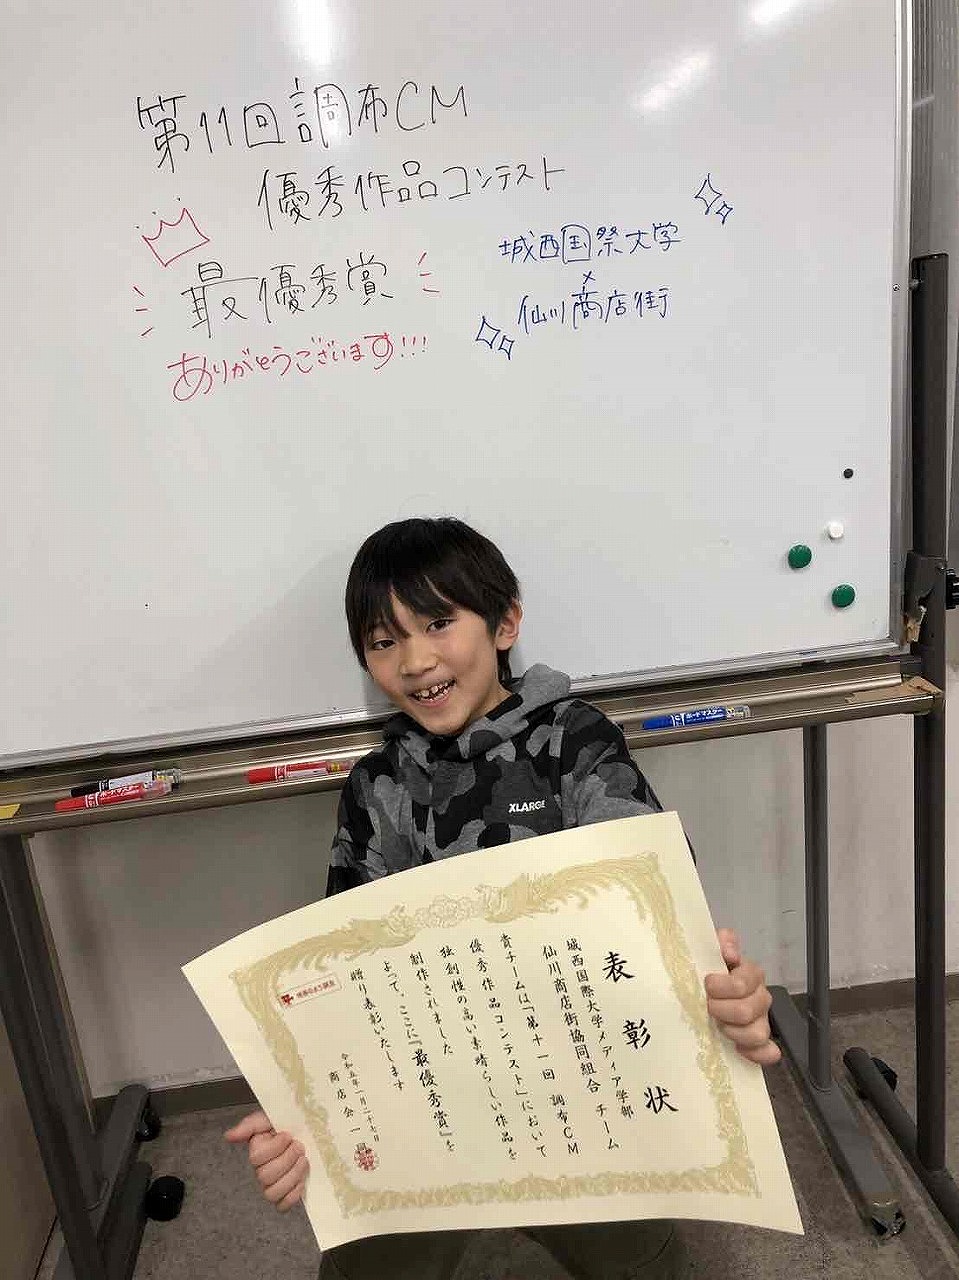 第11回調布CM
優秀作品コンテスト
最優秀賞
ありがとうございます!!!
城西国際大学
×
仙川商店街
ボードマスター
ボードマスター
XLARGE
表彰状
城西国際大学メディア学部
仙川商店街協同組合 チーム
貴チームは「第十一回 調布CM
優秀作品コンテスト」において
独創性の高い素晴らしい作品を
創作されました
よって、ここに『最優秀賞』を
贈り表彰いたします
令和五年一月二十七日
商店会一同